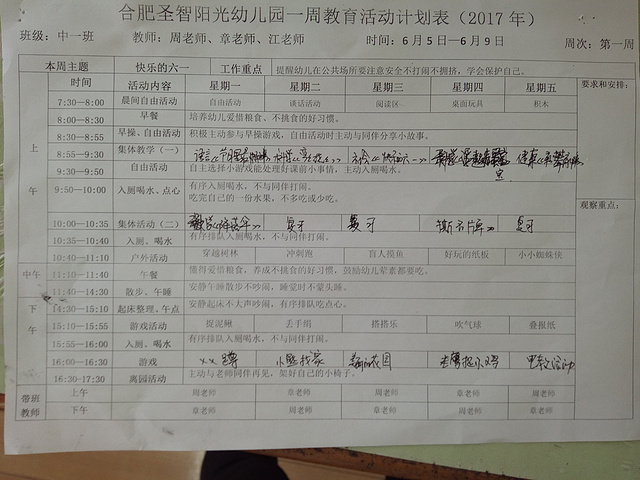 合肥圣智阳光幼儿园一周教育活动计划表（2017 年）
班级：中一班 教师：周老师、章老师、江老师 时间：6 月 5 日—6 月 9 日 周次：第一周
本周主题 快乐的六一 工作重点 提醒幼儿在公共场所要注意安全不打闹不拥挤，学会保护自己。
时间 活动内容 星期一 星期二 星期三 星期四 星期五 要求和安排：
7:30—8:00 晨间自由活动 自由活动 谈话活动 阅读区 桌面玩具 积木
上午
8:00—8:30 早餐 培养幼儿爱惜粮食、不挑食的好习惯。
8:30—8:55 早操、自由活动 积极主动参与早操游戏，自由活动时主动与同伴分享小故事。
8:55—9:30 集体教学（一）
9:30—9:50 自由活动 自主选择小游戏能处理好课前小事情，主动入厕喝水。
9:50—10:00 入厕喝水、点心 有序入厕喝水，不与同伴打闹。
吃完自己的一份水果，不多吃或少吃。
观察重点：
10:00—10:35 集体活动（二） 复习 复习 复习
10:35—10:40 入厕、喝水 有序排队入厕喝水，不与同伴打闹。
10:40—11:10 户外活动 穿越树林 冲刺跑 盲人摸鱼 好玩的纸板 小小蜘蛛侠
中午 11:10—11:40 午餐 懂得爱惜粮食，养成不挑食的好习惯，鼓励幼儿荤素都要吃。
11:40—14:30 散步、午睡 安静午睡散步不吵闹，睡觉时不蒙头睡。
下午
14:30—15:10 起床整理、午点 安静起床不大声吵闹，有序排队吃点心。
15:10—15:55 游戏活动 捉泥鳅 丢手绢 搭搭乐 吹气球 叠报纸
15:55—16:00 入厕、喝水 有序排队入厕喝水，不与同伴打闹。
16:00—16:30 游戏
16:30—17:30 离园活动 主动与老师同伴再见，架好自己的小椅子。
带班教师 上午 周老师 章老师 周老师 章老师 周老师
下午 章老师 周老师 章老师 周老师 章老师